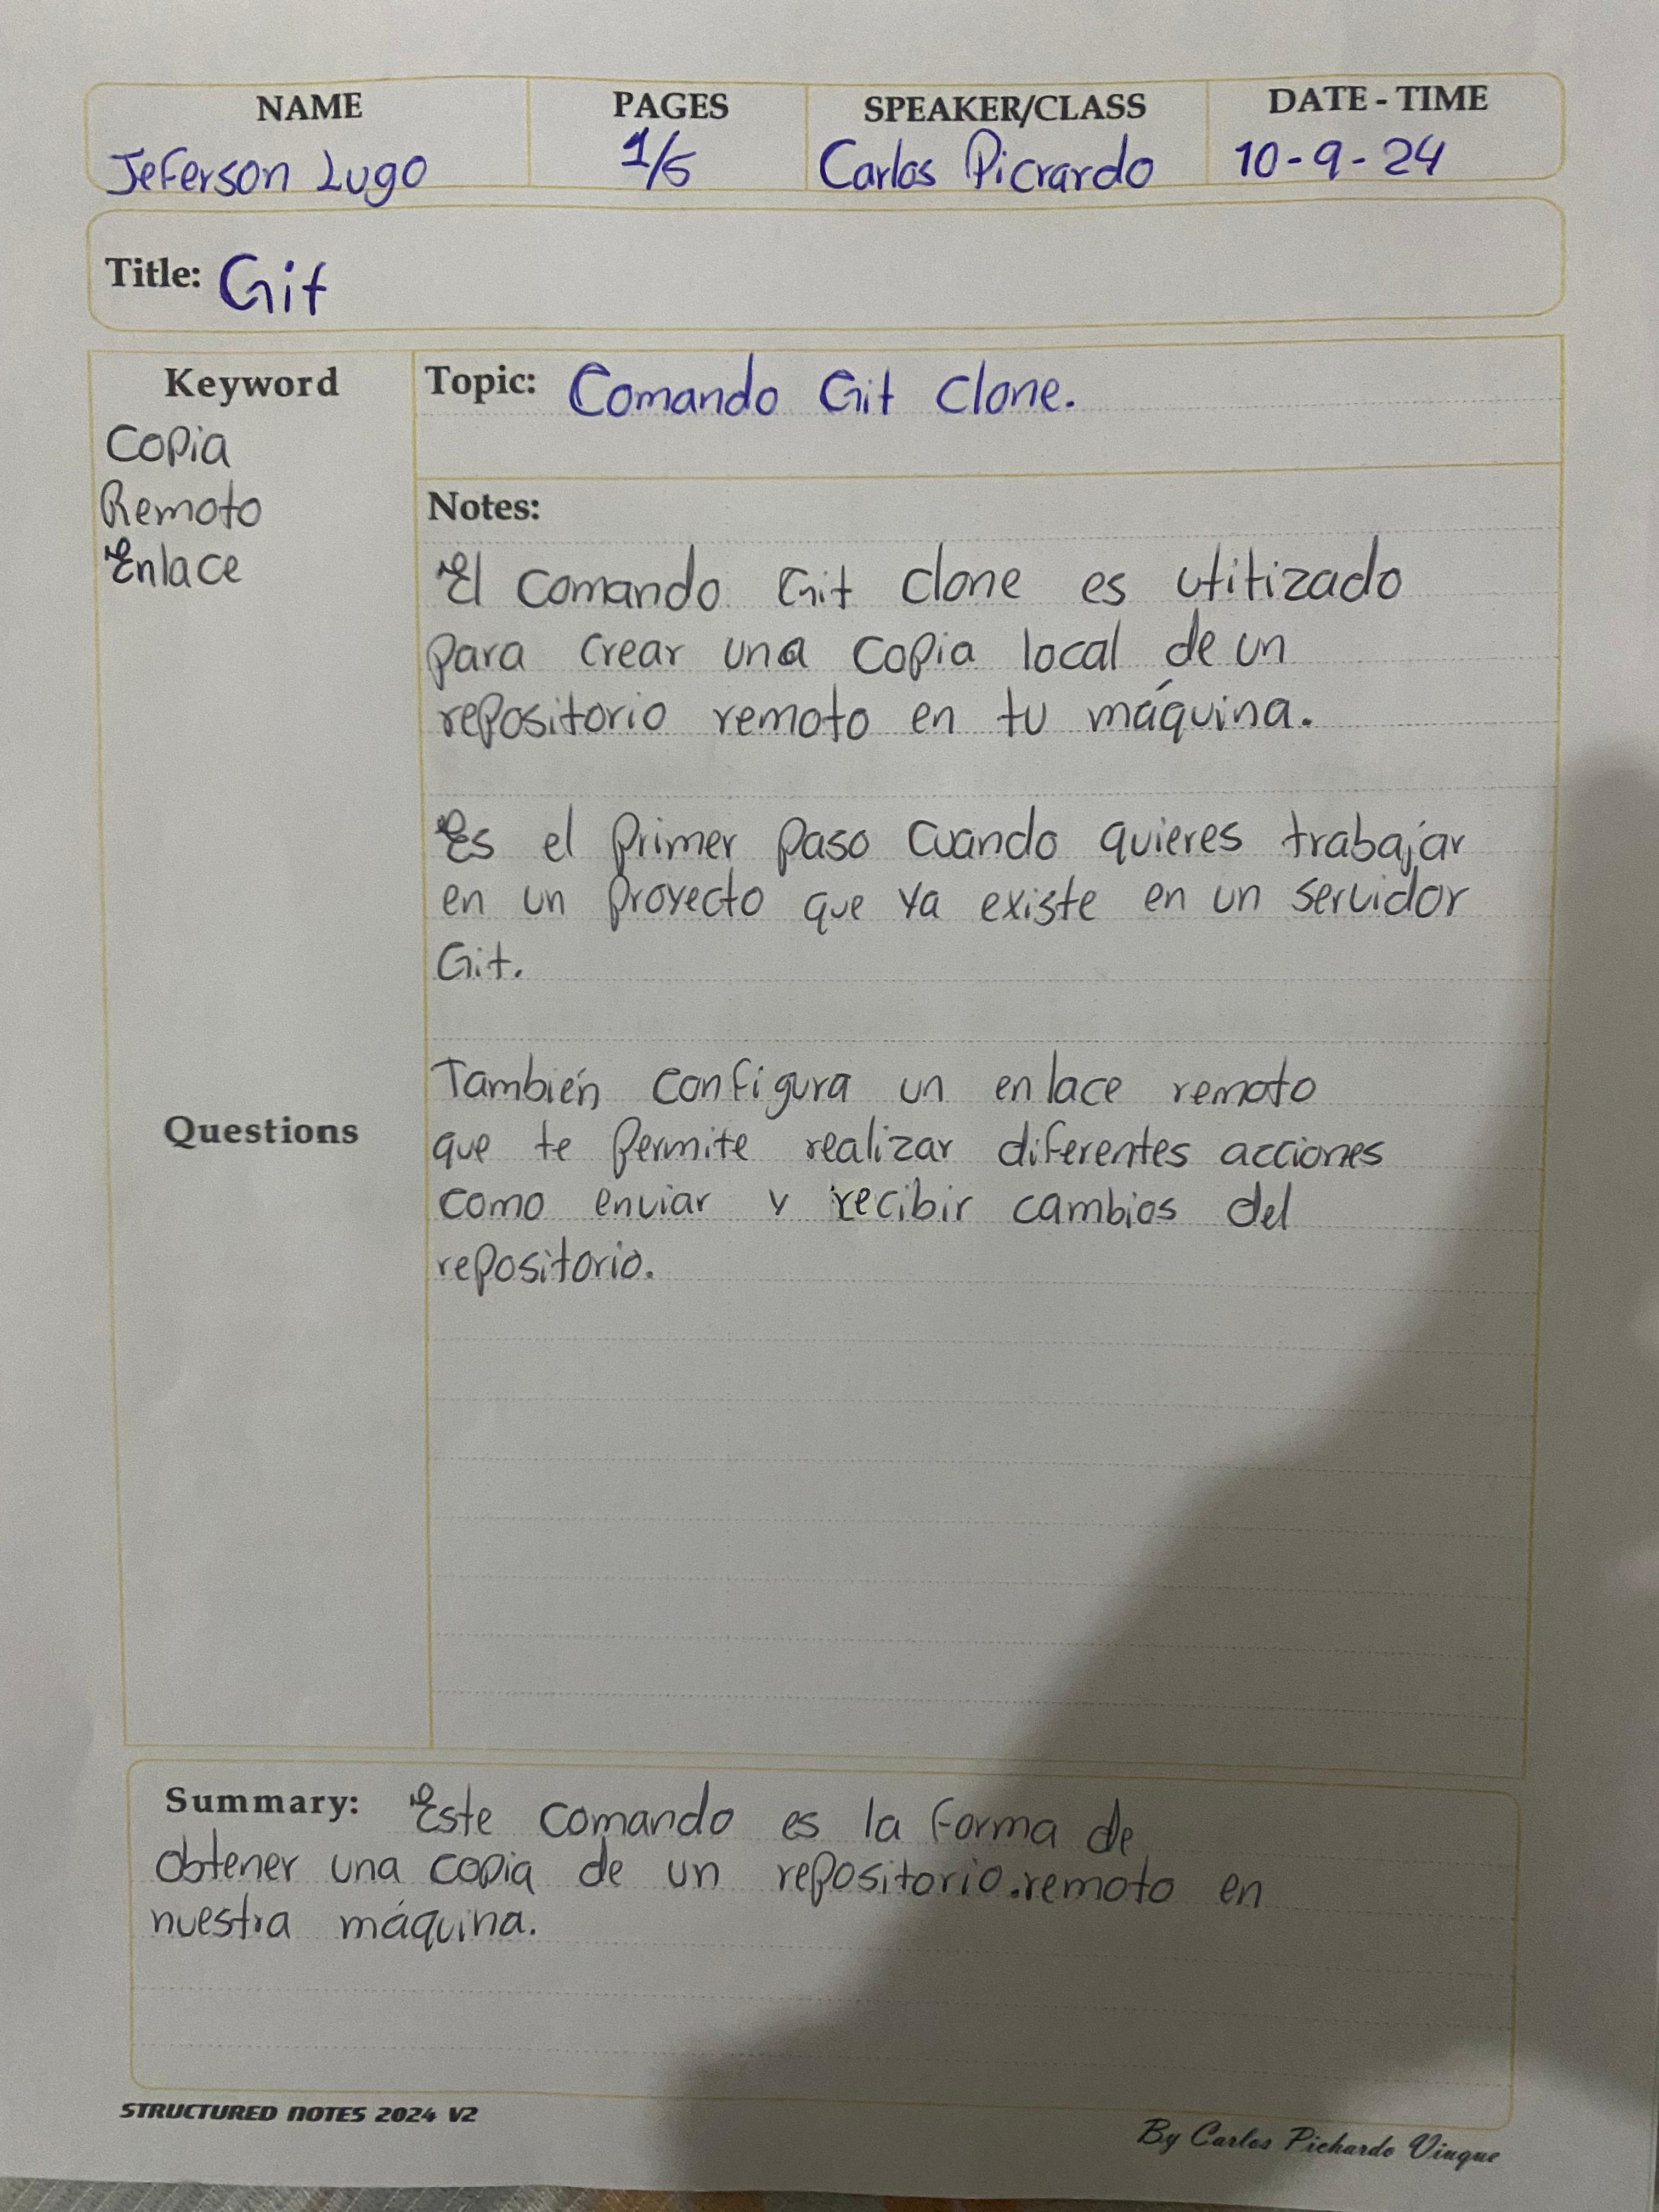 NAME PAGES SPEAKER/CLASS DATE - TIME
Jeferson Lugo 1/5 Carlos Picrardo 10-9-24
Title: Git
Keyword
Copia
Remoto
Enlace
Topic: Comando Git Clone.
Notes:
El comando Git clone es utitizado
para crear una copia local de un
repositorio remoto en tu máquina.
Es el primer paso cuando quieres trabajar
en un proyecto que ya existe en un servidor
Git.
Questions
También configura un enlace remoto
que te permite realizar diferentes acciones
como enviar y recibir cambios del
repositorio.
Summary: Este comando es la forma de
obtener una copia de un repositorio.remoto en
nuestra máquina.
STRUCTURED NOTES 2024 V2
By Carlos Pichardo Viuque